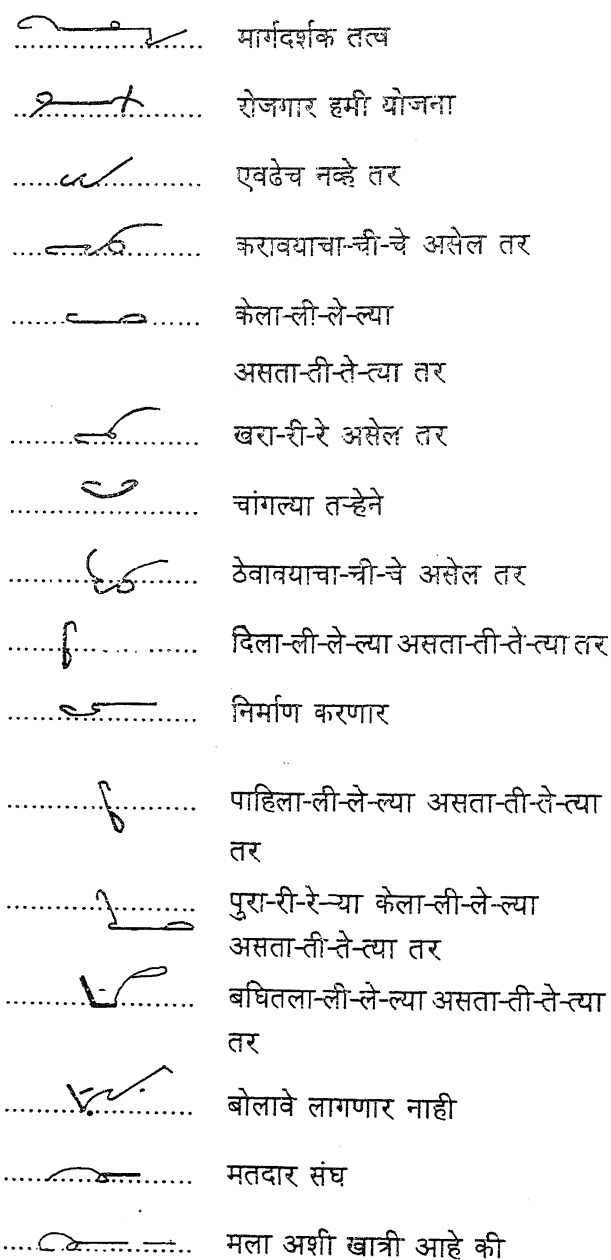 मार्गदर्शक तत्व
रोजगार हमी योजना
एवढेच नव्हे तर
करावयाचा-ची-चे असेल तर
केला-ली-ले-ल्या
असता-ती-ते-त्या तर
खरा-री-रे असेल तर
चांगल्या तऱ्हेने
ठेवावयाचा-ची-चे असेल तर
दिला-ली-ले-ल्या असता-ती-ते-त्या तर
निर्माण करणार
पाहिला-ली-ले-ल्या असता-ती-ते-त्या
तर
पुरा-री-रे-ऱ्या केला-ली-ले-ल्या
असता-ती-ते-त्या तर
बघितला-ली-ले-ल्या असता-ती-ते-त्या
तर
बोलावे लागणार नाही
मतदार संघ
मला अशी खात्री आहे की